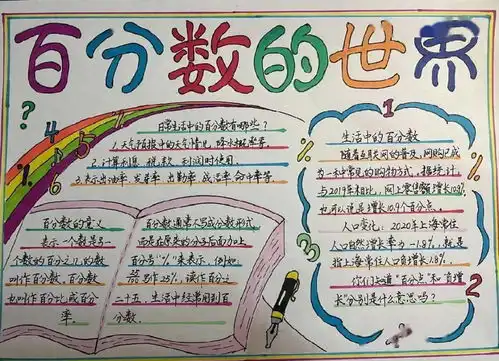 百分数的世界
?
4 5 7
%
2 6
日常生活中的百分数有哪些？
1.天气预报中的天气情况，降水概率等。
2.计算利息 税款 利润时使用。
3.表示出油率 发芽率 出勤率 成活率 命中率等
百分数的意义
表示一个数是另一
个数的百分之几的数
叫作百分数，百分数
也叫作百分比或百分
率。
百分数通常不写成分数形式
而是在原来的分子后面加上
百分号"%"来表示，例如，
25/100写作25%，读作百分之
二十五，生活中经常用到百
分数。
1
生活中的百分数
随着互联网的普及，网购已成
为一种常见的购物方式，据统计，
与2019年相比，网上零售额增长10.9%
也可以说是增长10.9个百分点。
人口变化：2020年上海常住
人口自然增长率为-1.8‰，就是
指上海常住人口负增长1.8‰，
你们知道"百分点"和"负增
长"分别是什么意思吗？
%
3
%
2